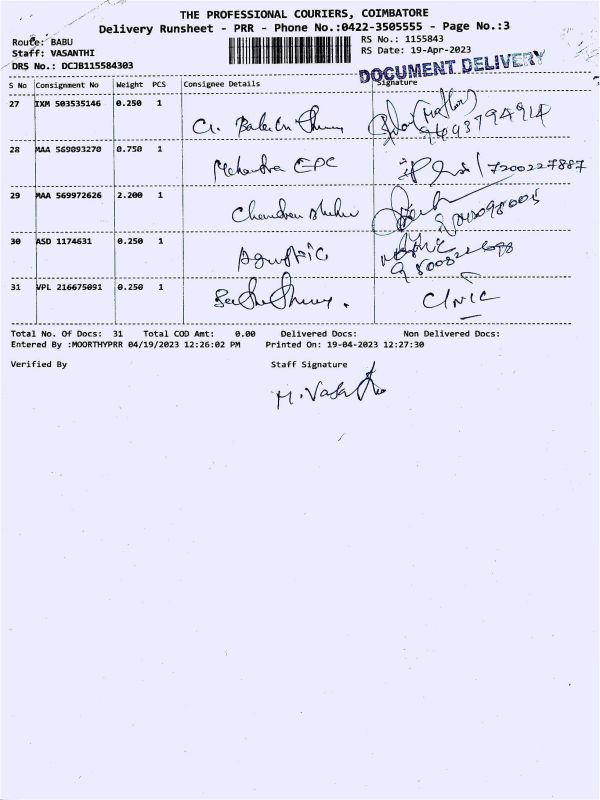 THE PROFESSIONAL COURIERS, COIMBATORE
Delivery Runsheet - PRR - Phone No.:0422-3505555 - Page No.:3
Route: BABU
RS No.: 1155843
Staff: VASANTHI
RS Date: 19-Apr-2023
DRS No.: DCJB115584303
DOCUMENT DELIVERY
S No Consignment No Weight PCS Consignee Details Signature
27 IXM 503535146 0.250 1
28 MAA 569093270 0.750 1 Mahendra EPC 7200227887
29 MAA 569972626 2.200 1
30 ASD 1174631 0.250 1
31 VPL 216675091 0.250 1 CLNIC
Total No. Of Docs: 31 Total COD Amt: 0.00 Delivered Docs: Non Delivered Docs:
Entered By :MOORTHYPRR 04/19/2023 12:26:02 PM Printed On: 19-04-2023 12:27:30
Verified By Staff Signature